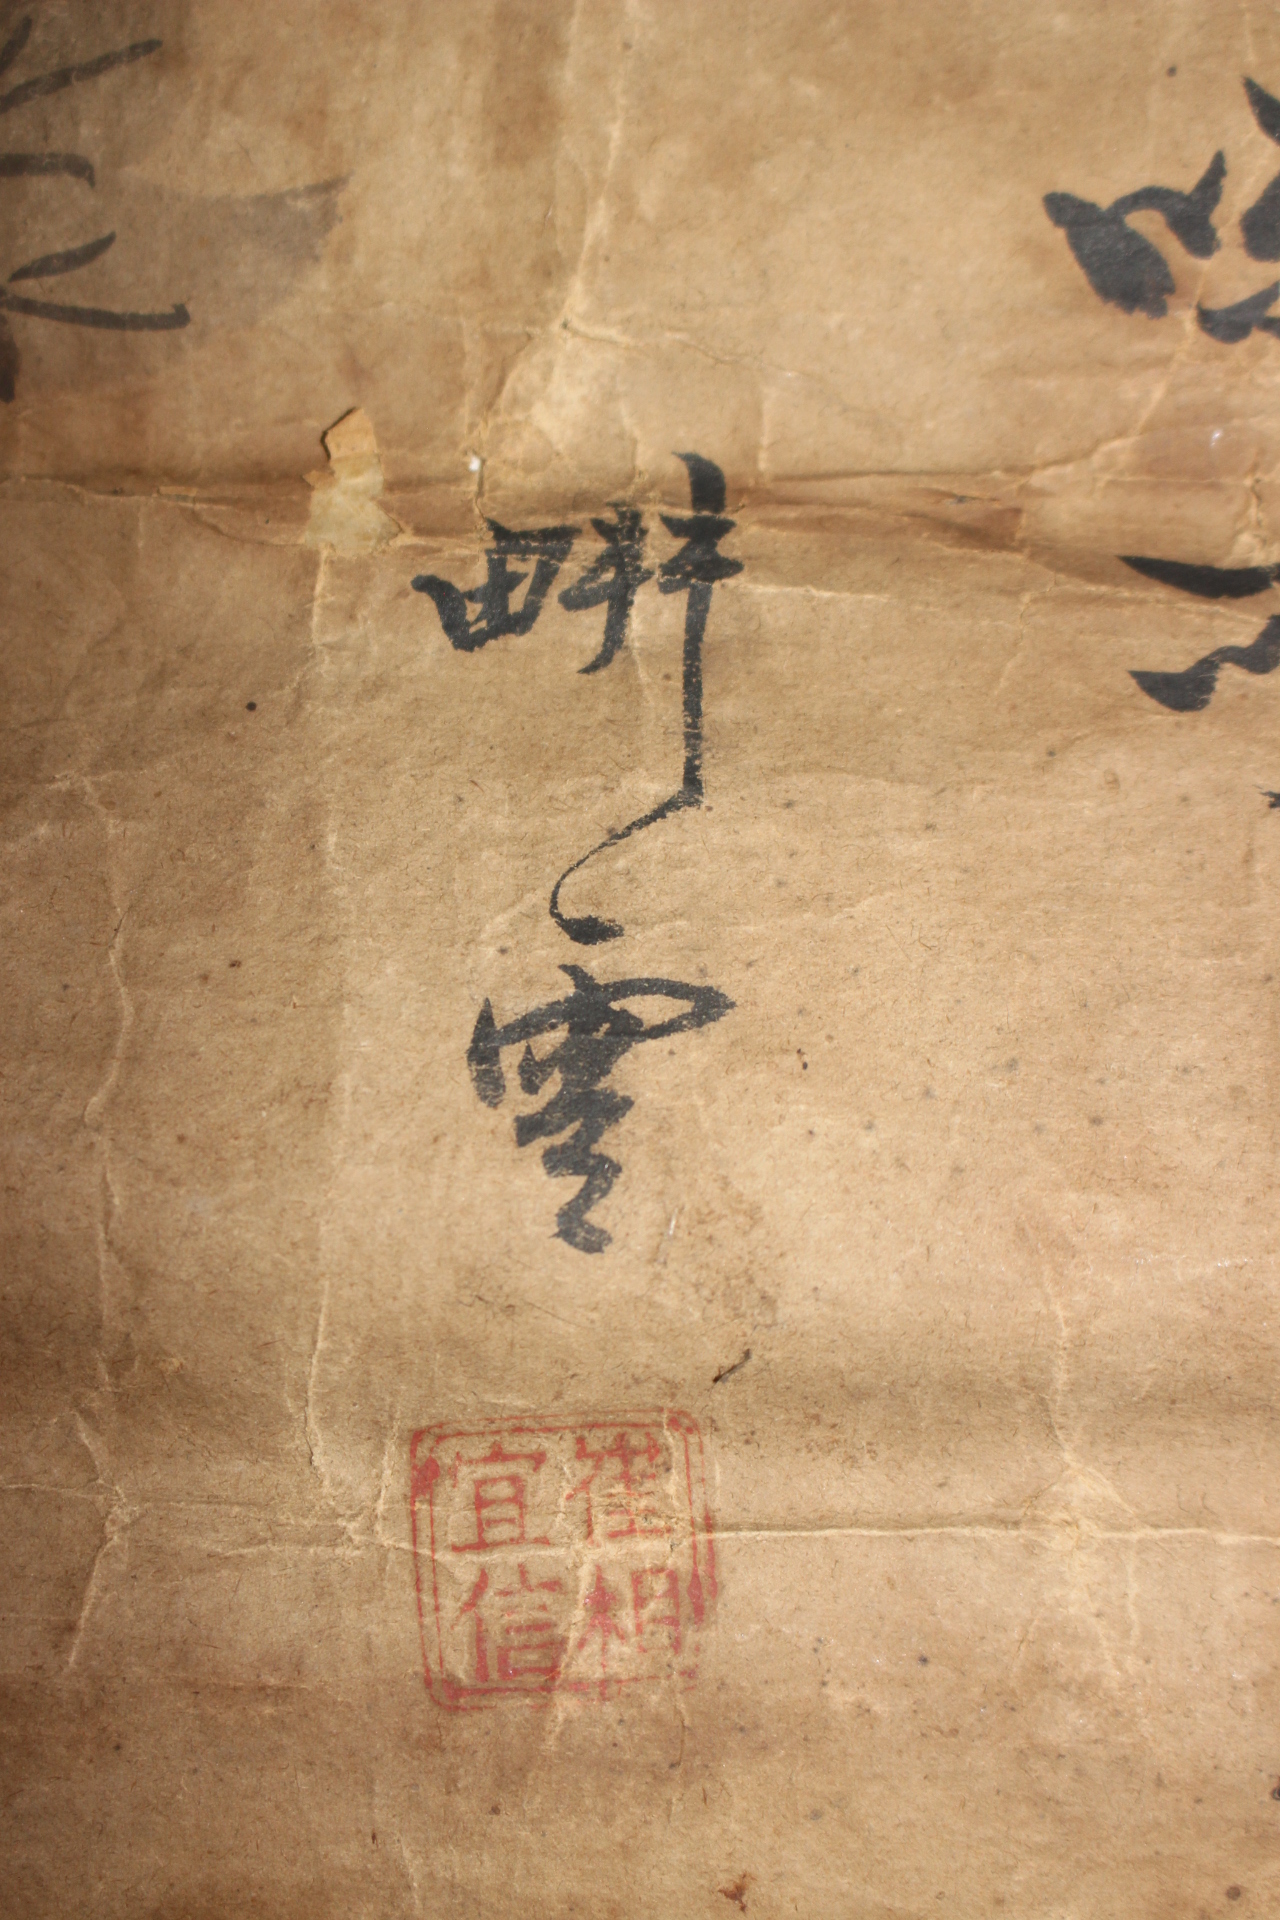 畊雲
崔相
宜信